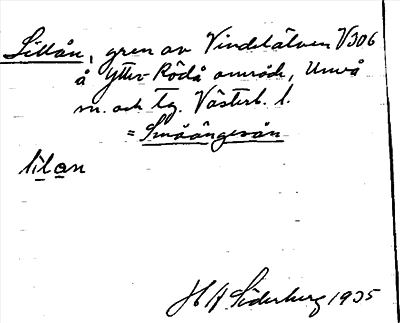 Lillån, gren av Vindelälven V306
å Ytter-Rödå område, Umeå
sn. och tg. Västerb. l.
= Småängesån
lilan
H A Söderberg 1935